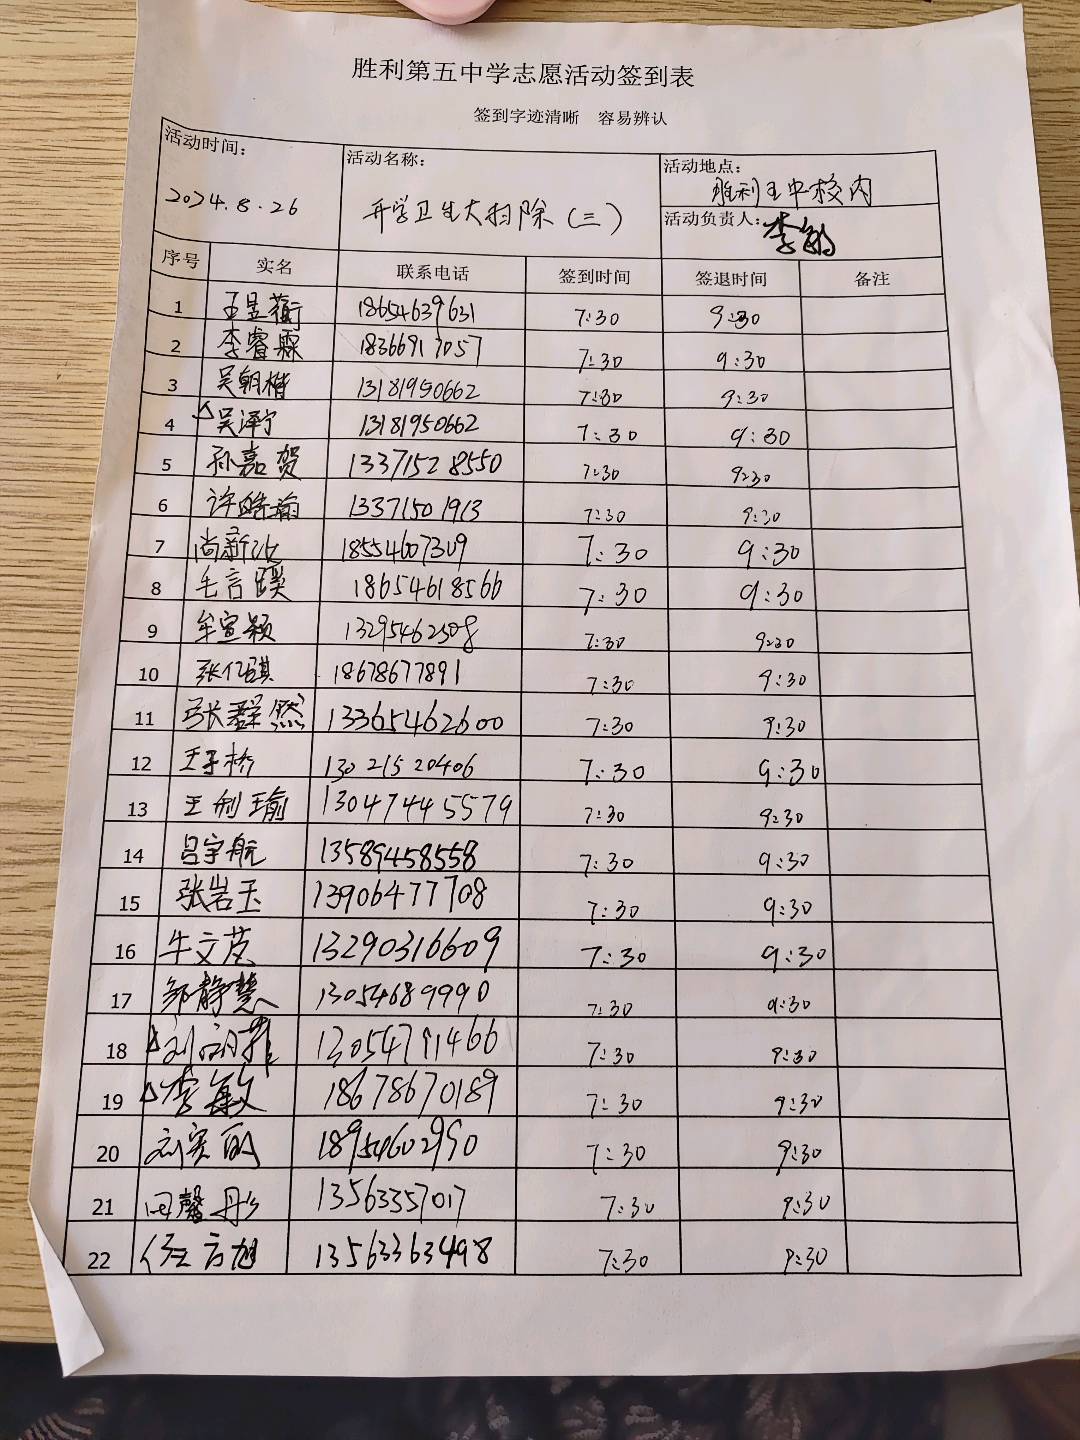 胜利第五中学志愿活动签到表
签到字迹清晰 容易辨认
活动时间: 活动名称: 活动地点:
2024.8.26 开学卫生大扫除(三) 胜利五中校内
活动负责人:李敏
序号 实名 联系电话 签到时间 签退时间 备注
1 王昱衡 18654639631 7:30 9:30
2 李睿霖 18366917057 7:30 9:30
3 吴朝楷 13181950662 7:30 9:30
4 △吴泽宁 13181950662 7:30 9:30
5 孙嘉贺 13371528550 7:30 9:30
6 许皓瑜 13371501913 7:30 9:30
7 尚新 18554607309 7:30 9:30
8 毛言蹊 18654618566 7:30 9:30
9 牟宣颖 13295462508 7:30 9:30
10 张亿骐 18678677891 7:30 9:30
11 张群然 13365462600 7:30 9:30
12 王子桥 13021520406 7:30 9:30
13 王利瑜 13047445579 7:30 9:30
14 吕宇航 13589458558 7:30 9:30
15 张岩玉 13906477708 7:30 9:30
16 牛文 13290316609 7:30 9:30
17 邹静慧 13054689990 7:30 9:30
18 △刘 菲 13054791466 7:30 9:30
19 △李敏 18678670189 7:30 9:30
20 刘奕 18954602990 7:30 9:30
21 田馨彤 13563357017 7:30 9:30
22 任言旭 13563363498 7:30 9:30